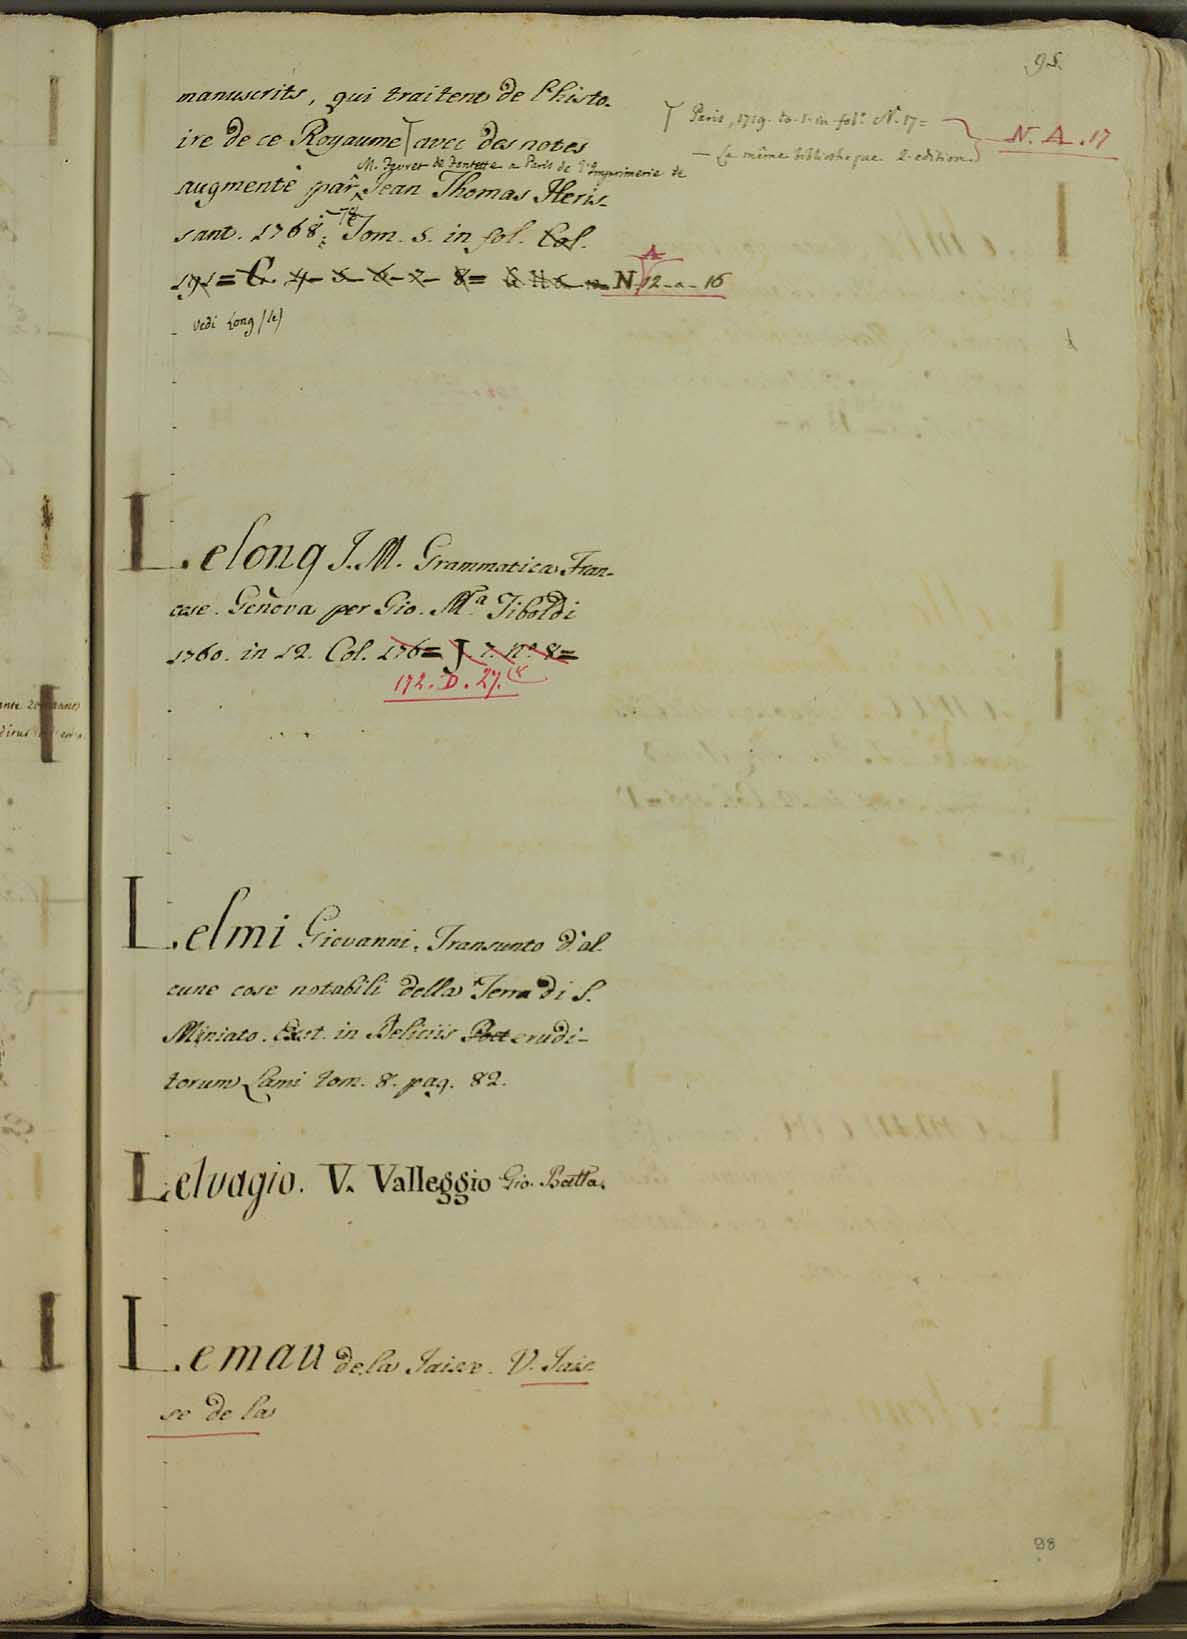 95.
manuscrits, qui traitent de l'histo-
ire de ce Royaume avec des notes
Paris, 1719. to. 1. in fol.° N. 17=
N. A. 17
— La même bibliotheque. 2. edition.
M. Fevret de Fontette a Paris de l'Imprimerie de
augmentè par Jean Thomas Heris-
sant. 1768. Tom. 5. in fol. Col.
191 = C. 4- 5- 6- 7- 8= N. 12-a-16
A
Vedi Long (le)
Lelong J. M. Grammatica Fran-
cese. Genova per Gio. M.a Tiboldi
1760. in 12. Col. 176= J 7. n.° 8=
172. D. 27.
Lelmi Giovanni. Transunto d'al
cune cose notabili della Terra di S.
Miniato. Exst. in Deliciis erudi-
torum Lami tom. 8. pag. 82.
Lelvagio. V. Valleggio Gio. Batta.
Lemau de la Jaisse. V. Jais-
se de la
98